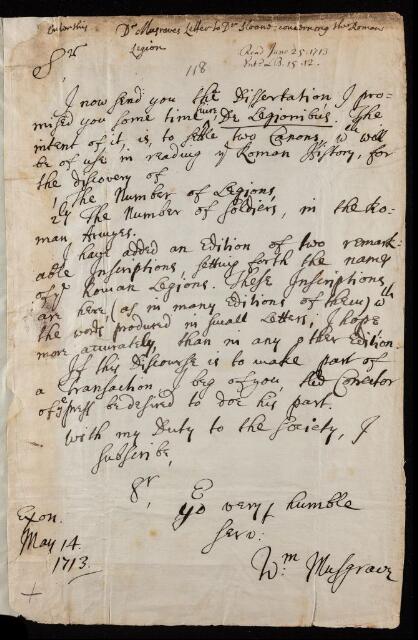 Enter this
Dr. Musgraves Letter to Dr. Sloane concerning the Roman
Legion
Read June 25. 1713
118
Sr.
I now send you the Dissertation, I pro-
mised you some time since, De Legionibus. The
intent of it, is, to settle two Canons, wch will
be of use in reading ye Roman History, for
the discovery of
1, The Number of Legions,
2ly The Number of Soldiers, in the Ro-
man Armyes.
I have added an Edition of two remark-
able Inscriptions, setting forth the names
of ye Roman Legions. These Inscriptions
are here, (as in many Editions of them) wth
the words produced in small Letters, I hope
more accurately, than in any other Edition.
If this Discourse is to make part of
a Transaction I beg of you, the Corrector
of ye press be desired to doe his part.
With my Duty to the Society, I
subscribe,
Sr,
Yo very humble
serv:
Wm Musgrave
Exon.
May 14.
1713.